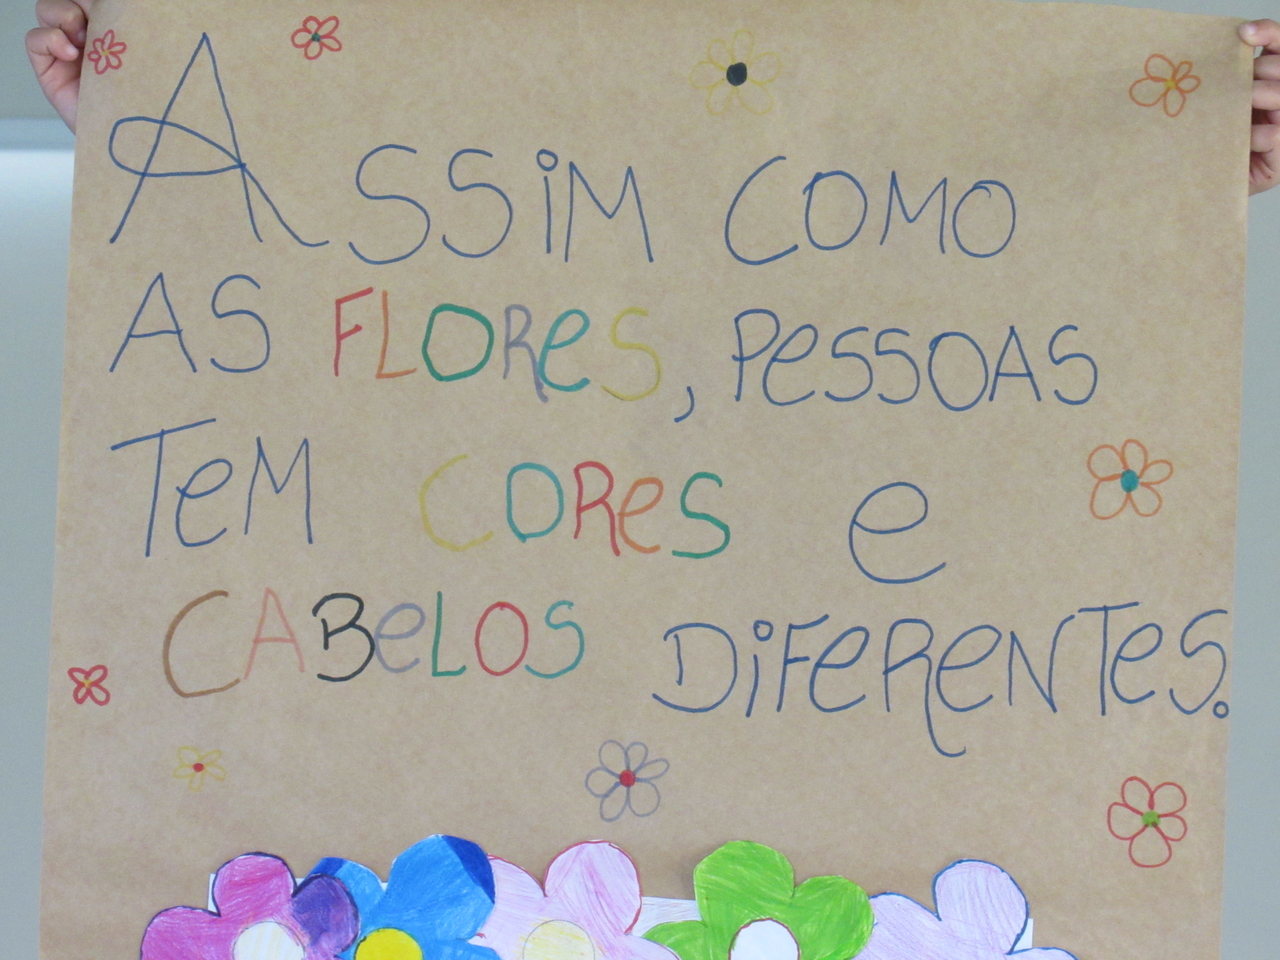 ASSiM COMO
AS FLOReS, PeSSOAS
TeM COReS e
CABeLOS DiFeReNTeS.